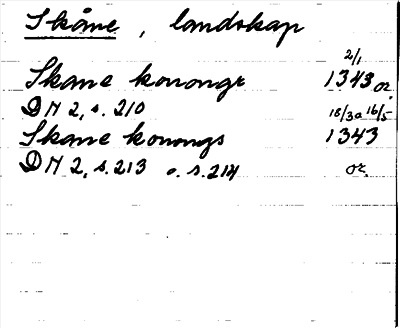 Skåne, landskap
2/1
Skane konongr 1343 or.
DN 2, s. 210 18/3 o 16/5
Skane konongs 1343
DN 2, s. 213 o. s. 214 or.